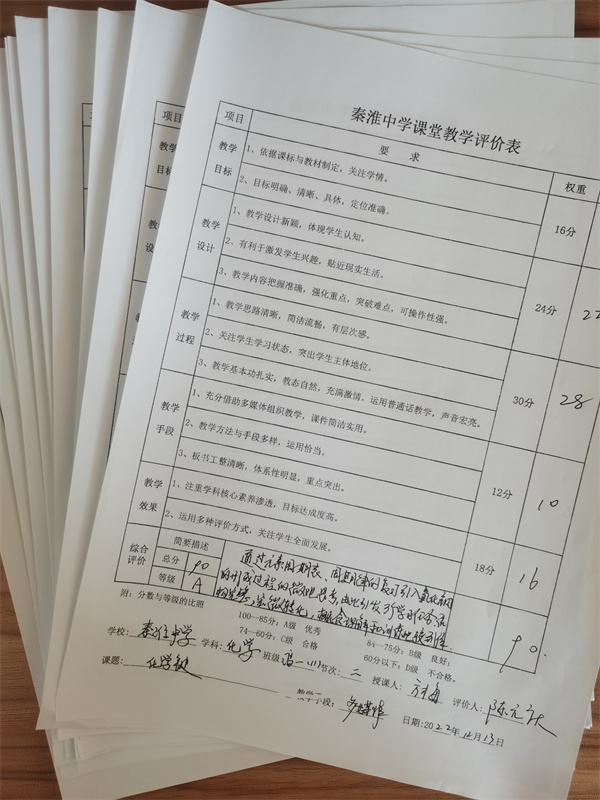 秦淮中学课堂教学评价表
项目 要 求 权重
教学目标
1、依据课标与教材制定，关注学情。
2、目标明确、清晰、具体，定位准确。
16分
教学设计
1、教学设计新颖，体现学生认知。
2、有利于激发学生兴趣，贴近现实生活。
3、教学内容把握准确，强化重点，突破难点，可操作性强。
24分 22
教学过程
1、教学思路清晰，简洁流畅，有层次感。
2、关注学生学习状态，突出学生主体地位。
3、教学基本功扎实，教态自然，充满激情。运用普通话教学，声音宏亮。
30分 28
教学手段
1、充分借助多媒体组织教学，课件简洁实用。
2、教学方法与手段多样，运用恰当。
3、板书工整清晰，体系性明显，重点突出。
12分 10
教学效果
1、注重学科核心素养渗透，目标达成度高。
2、运用多种评价方式，关注学生全面发展。
18分 16
综合评价
简要描述
总分 90
等级 A
通过元素周期表、周期律的复习引入氯化钠
的形成过程的微观思考
90.
附：分数与等级的比照
100—85分：A级 优秀 84—75分：B级 良好；
74—60分：C级 合格 60分以下：D级 不合格。
学校：秦淮中学 学科：化学 班级 节次：二 授课人： 评价人：
课题：化学键
日期：2022年12月13日